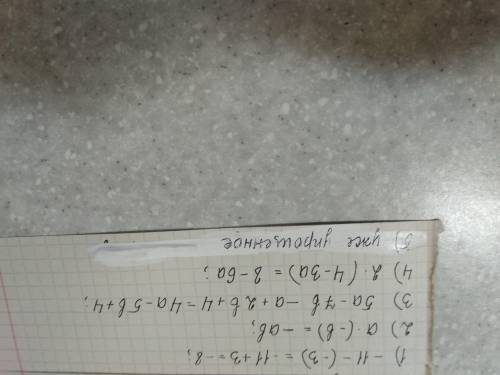 1) -11-(-3) = -11+3 = -8;
2) a·(-b) = -ab;
3) 5a-7b-a+2b+4 = 4a-5b+4;
4) 2·(4-3a) = 8-6a;
5) уже упрошенное